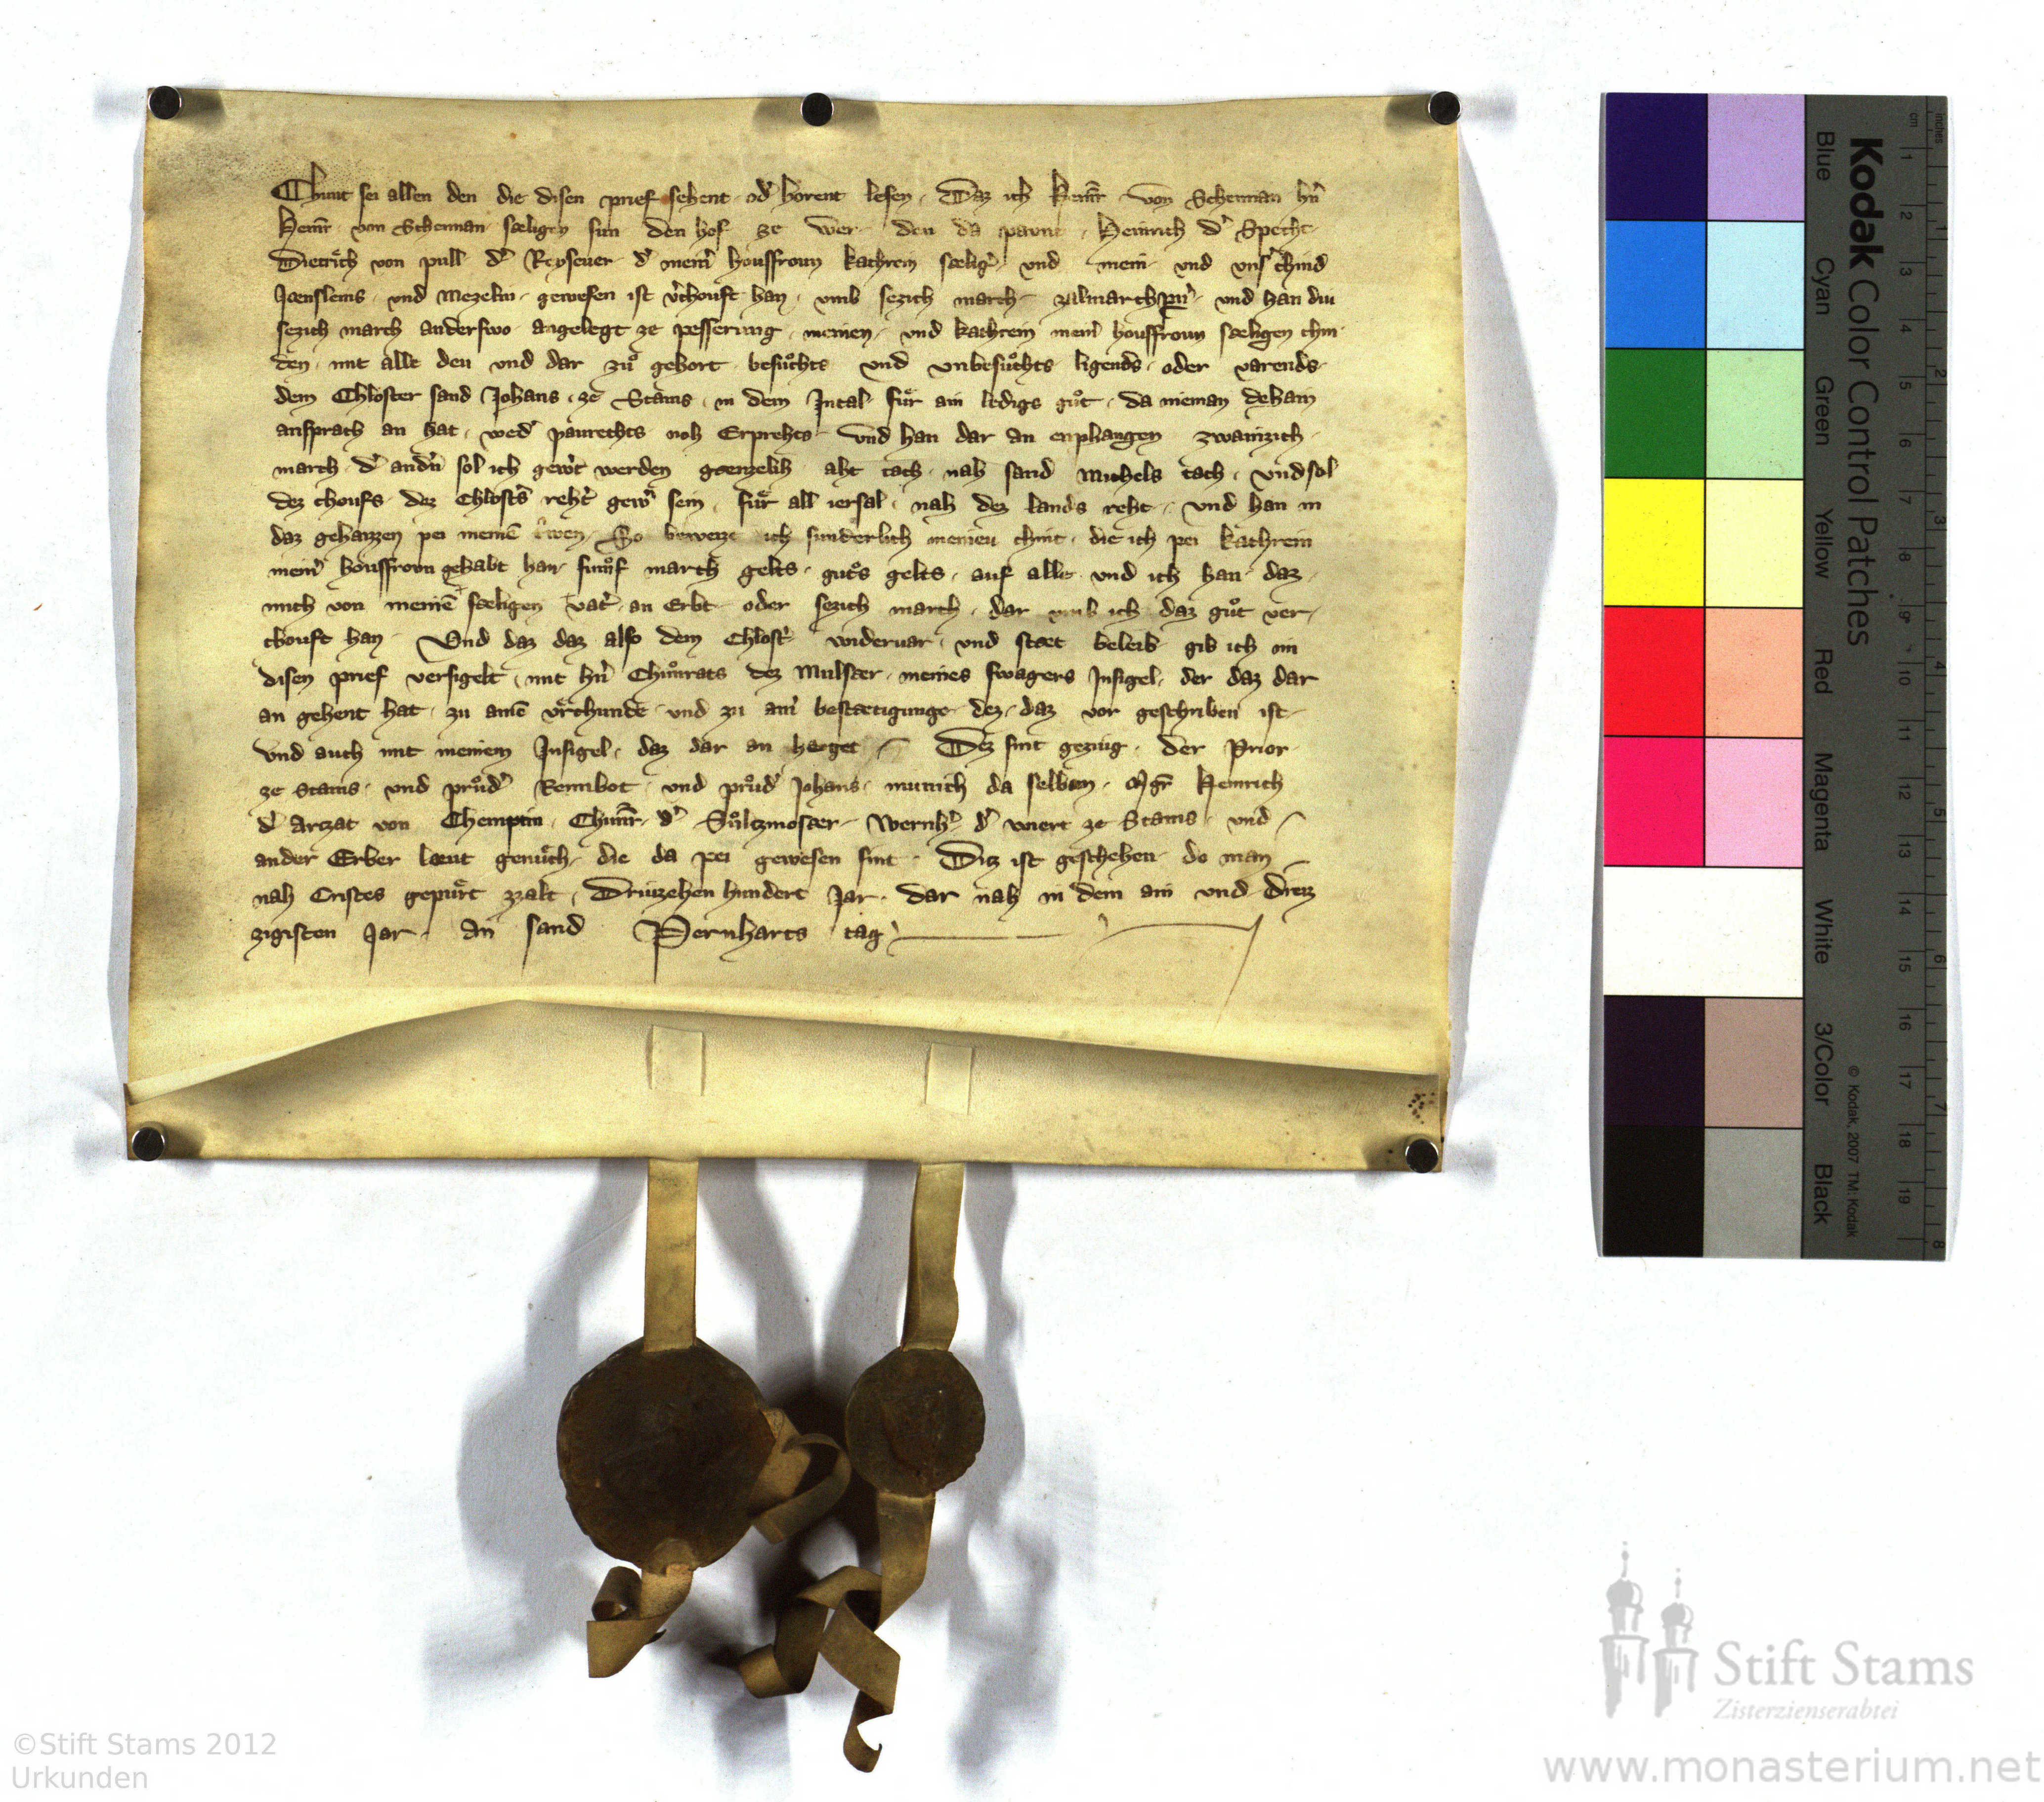 Chunt sei allen den die disen prief sehent od' horent lesen · Daz ich Heinr̄ von Schennan h'n
Heinr̄ von Schennan sæligen sun den hof ze wer den da pawnt Heinrich d' Specht
Dietrich von pull d' Reyfener d' mein' housfroun kathrein sælig' und mein und uns' chind
Jænsleins und Mezelin gewesen ist v'chouft han umb sezich march und han diu
sezich march anderswo angelegt ze pesserung meinen und kathrein mein' housfroun sæligen chin
den mit allt deu und dar zuͦ gehort besuͦchts und unbesuͦchts ligends oder varends
dem Chloster sand Johans ze Stams in dem Intal fuͤr ain ledigs guͦt da nieman dehain
ansprach an hat wed' paurechts noh Erprehts und han dar an enphangen zwainzich
march d' and'n sol ich gew't werden gænzelih aht tach nah sand Michels tach und sol
dez choufs dez Chlost's reht' gew' sein fuͤr all iersal nah dez lands reht und han in
daz gehaizzen pei meinē t'wen So beweize ich sunderlich meinen chint die ich pei kathrein
mein' housfroun gehabt han fumͦf march gelts guͦts gelts auf alle und ich han daz
mich von meinē sæligen vat' an Erbt oder sezich march dar umb ich daz guͦt ver
chouft han Und daz daz also dem Chlost' underuar und stæt beleib gib ich im
disen prief versigelt mit h'n Chuͦnrats dez Mulster meines swagers Insigel der daz dar
an gehent hat zu ainē urchunde und zu ain' bestætigunge dez daz vor geschriben ist
und auch mit meinem Insigel daz dar an hanget Dez sint geziug der Prior
ze Stams und pruͦd' Rennbot und pruͦd' Johans munich da selben Mgr̄ Heinrich
d' arzat von Chemptin Chunr̄ d' Suͤltzmoser Wernh' d' wiert ze Stams und
ander Erber læut genuͤch die da pei gewesen sint Ditz ist geschehen do man
nah Cristes gepuͤrt zalt Driuzehen hundert Jar dar nah in dem ain und dreiz
zigisten Jar an sand Pernharts tag
Kodak Color Control Patches
Blue Cyan Green Yellow Red Magenta White 3/Color Black
© Kodak, 2007 TM: Kodak
inches 1 2 3 4 5 6 7 8
cm 1 2 3 4 5 6 7 8 9 10 11 12 13 14 15 16 17 18 19
Stift Stams
Zisterzienserabtei
©Stift Stams 2012
Urkunden
www.monasterium.net